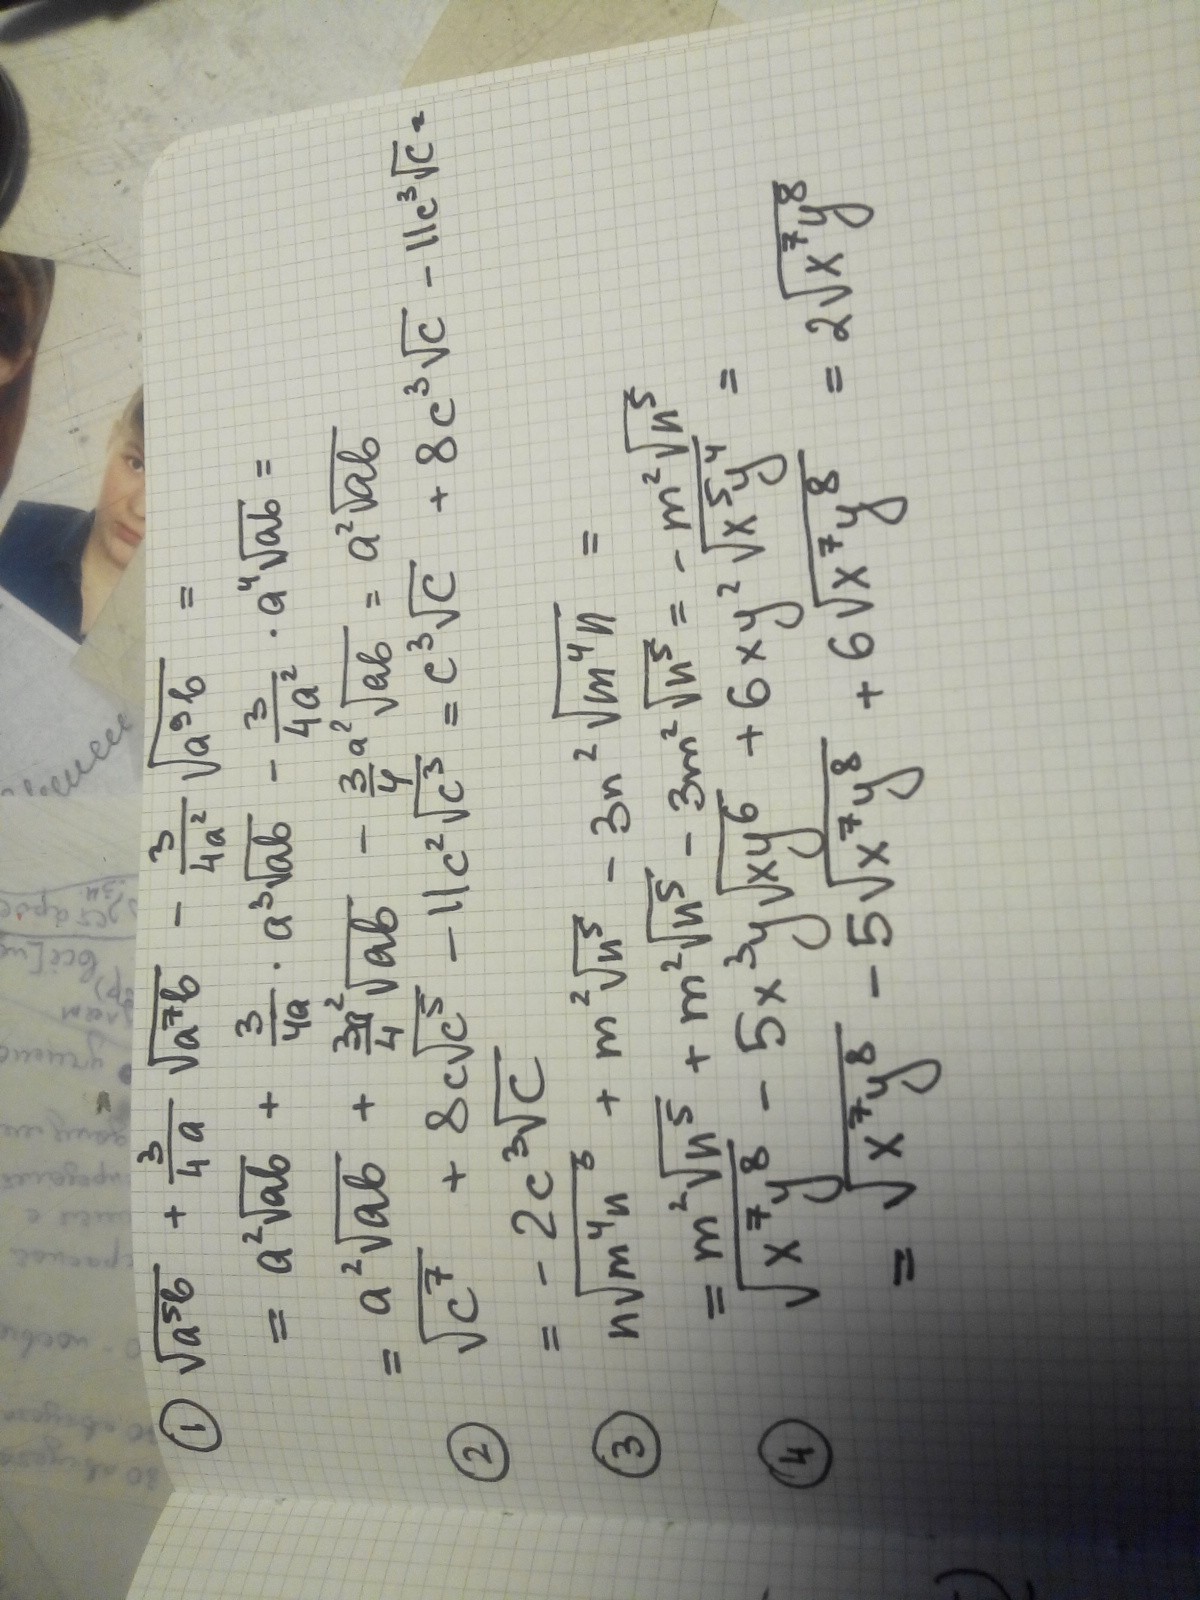 ① √a⁵b + 3/4a √a⁷b − 3/4a² √a⁹b =
= a²√ab + 3/4a · a³√ab − 3/4a² · a⁴√ab =
= a²√ab + 3a²/4 √ab − 3/4 a²√ab = a²√ab
② √c⁷ + 8c√c⁵ − 11c²√c³ = c³√c + 8c³√c − 11c³√c =
= − 2c³√c
③ n√m⁴n³ + m²√n⁵ − 3n²√m⁴n =
= m²√n⁵ + m²√n⁵ − 3m²√n⁵ = − m²√n⁵
④ √x⁷y⁸ − 5x³y√xy⁶ + 6xy²√x⁵y⁴ =
= √x⁷y⁸ − 5√x⁷y⁸ + 6√x⁷y⁸ = 2√x⁷y⁸